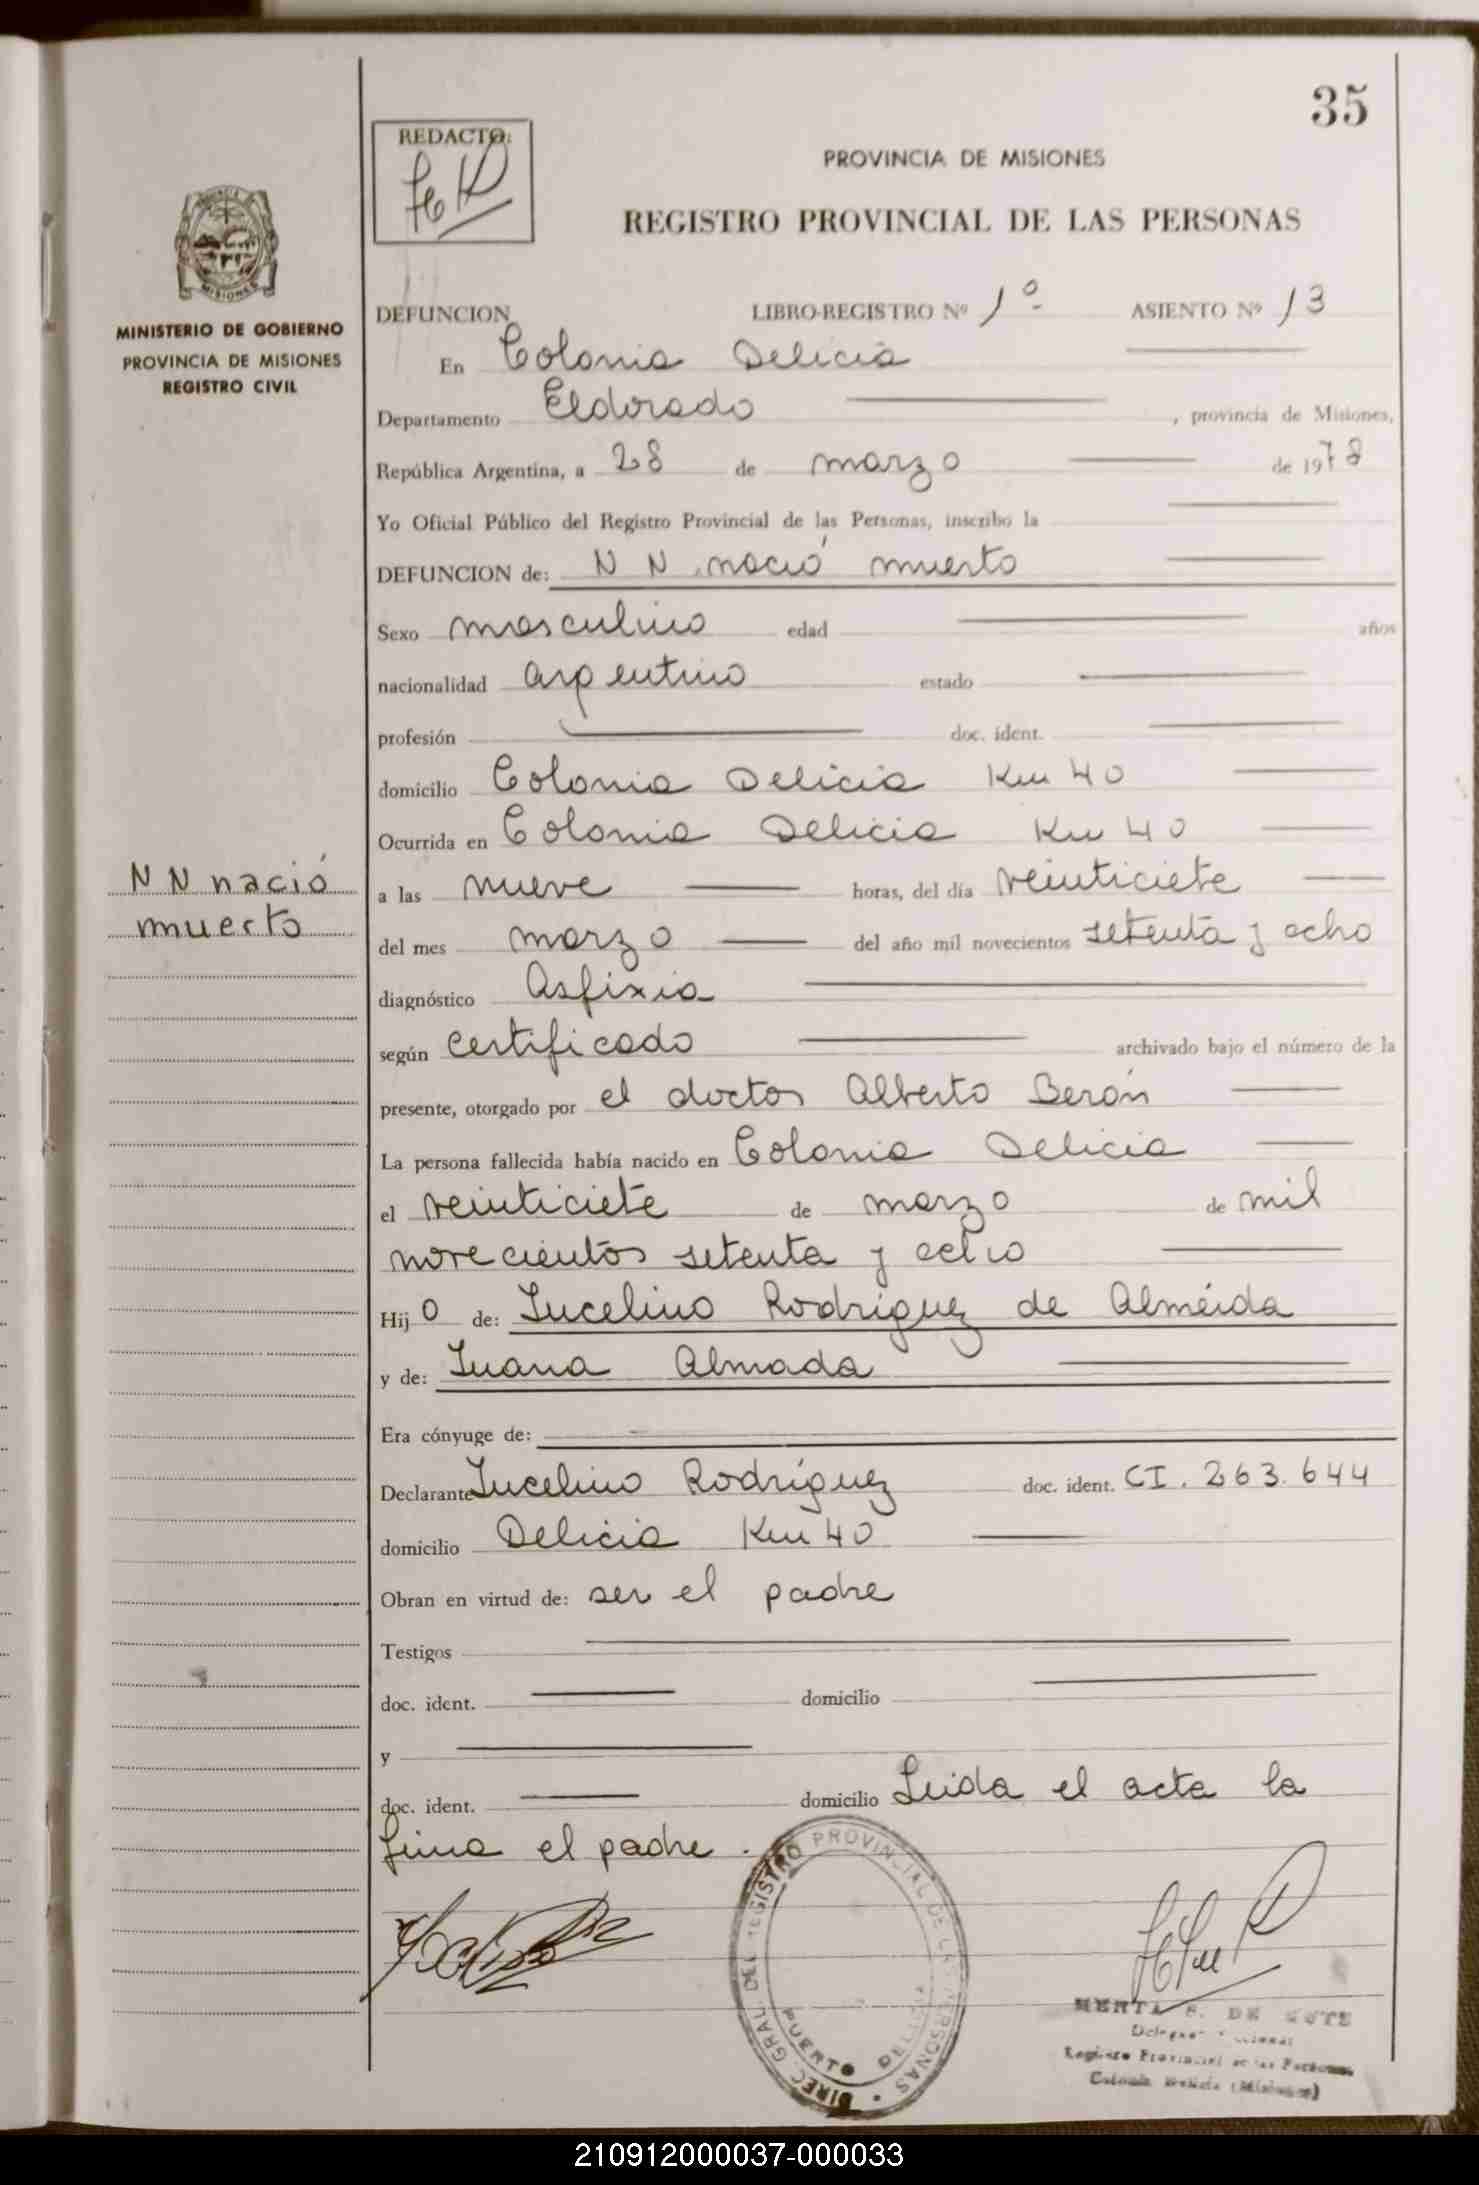 35
REDACTO:
PROVINCIA DE MISIONES
REGISTRO PROVINCIAL DE LAS PERSONAS
MINISTERIO DE GOBIERNO
PROVINCIA DE MISIONES
REGISTRO CIVIL
DEFUNCION LIBRO-REGISTRO Nº 1º ASIENTO Nº 13
En Colonia Delicia
Departamento Eldorado, provincia de Misiones,
República Argentina, a 28 de marzo de 1978
Yo Oficial Público del Registro Provincial de las Personas, inscribo la
DEFUNCION de: N N nació muerto
Sexo masculino edad años
nacionalidad argentino estado
profesión doc. ident.
domicilio Colonia Delicia Km 40
Ocurrida en Colonia Delicia Km 40
N N nació
muerto
a las nueve horas, del día veinticiete
del mes marzo del año mil novecientos setenta y ocho
diagnóstico Asfixia
según certificado archivado bajo el número de la
presente, otorgado por el doctor Alberto Berón
La persona fallecida había nacido en Colonia Delicia
el veinticiete de marzo de mil
novecientos setenta y ocho
Hijo de: Jucelino Rodríguez de Alméida
y de: Juana Almada
Era cónyuge de:
Declarante Jucelino Rodríguez doc. ident. CI. 263.644
domicilio Delicia Km 40
Obran en virtud de: ser el padre
Testigos
doc. ident. domicilio
y
doc. ident. domicilio Leida el acta la
firma el padre.
DIREC. GRAL. DEL REGISTRO PROVINCIAL DE LAS PERSONAS
PUERTO DELICIA
DE
Registro Provincial de las Personas
Colonia Delicia (Misiones)
210912000037-000033